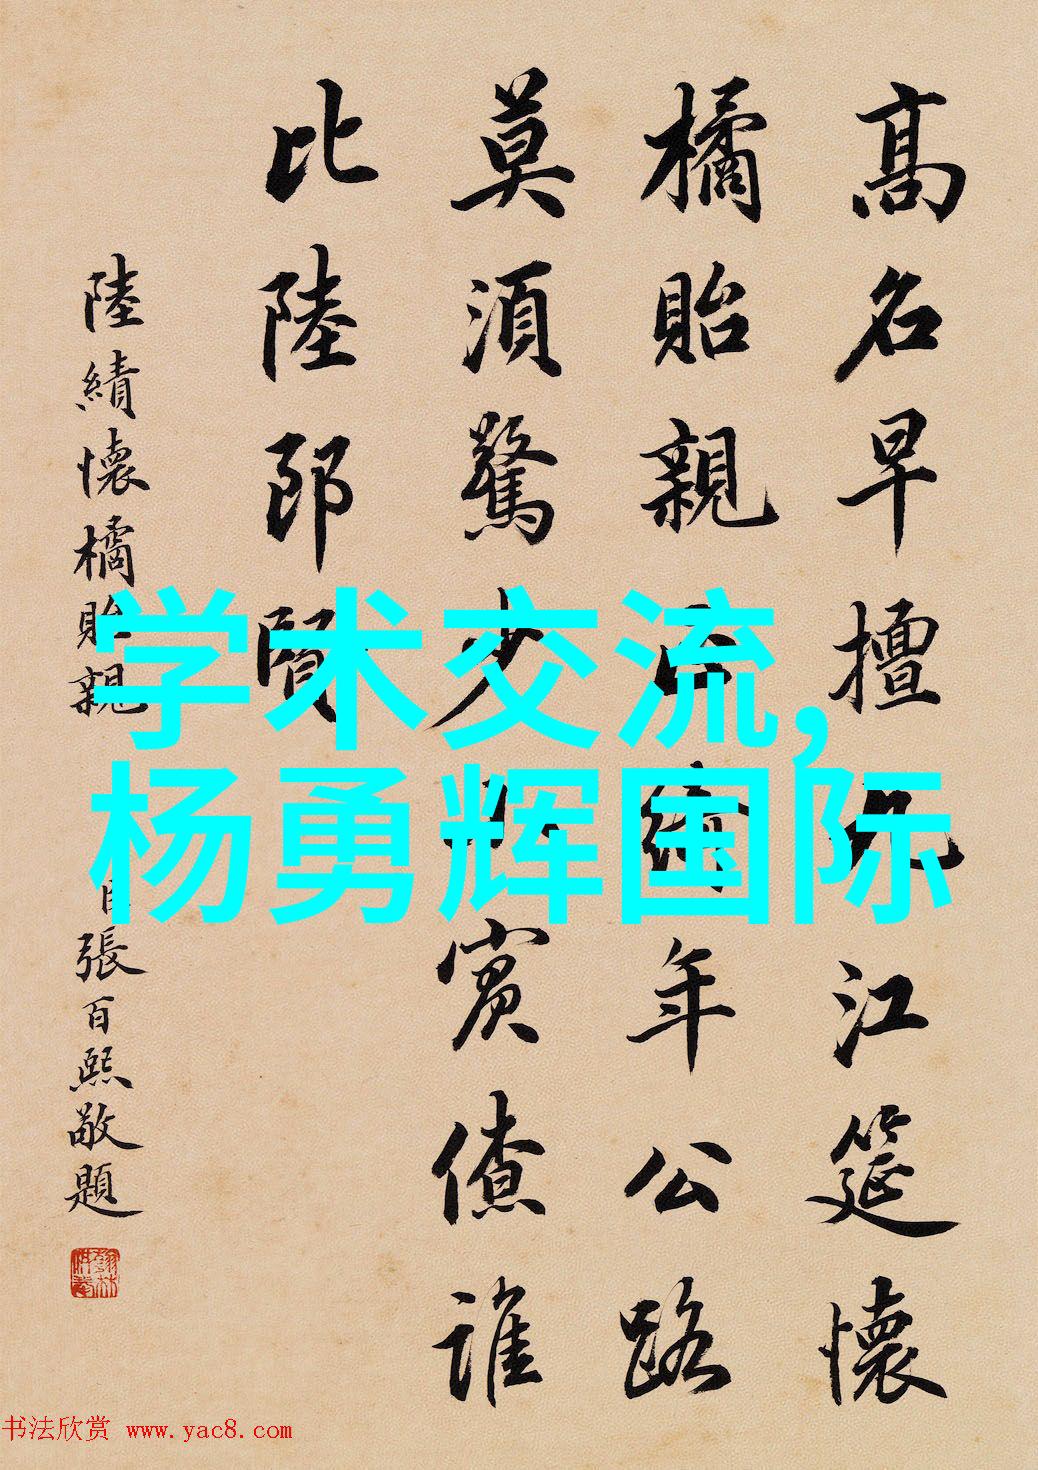 高名早擅江筵懷
橘貽親年公路
莫須驚少賓僚誰
比陸郎賢
陸績懷橘貽親
臣張百熙敬題
学术交流,
杨勇辉国际
书法欣赏 www.yac8.com